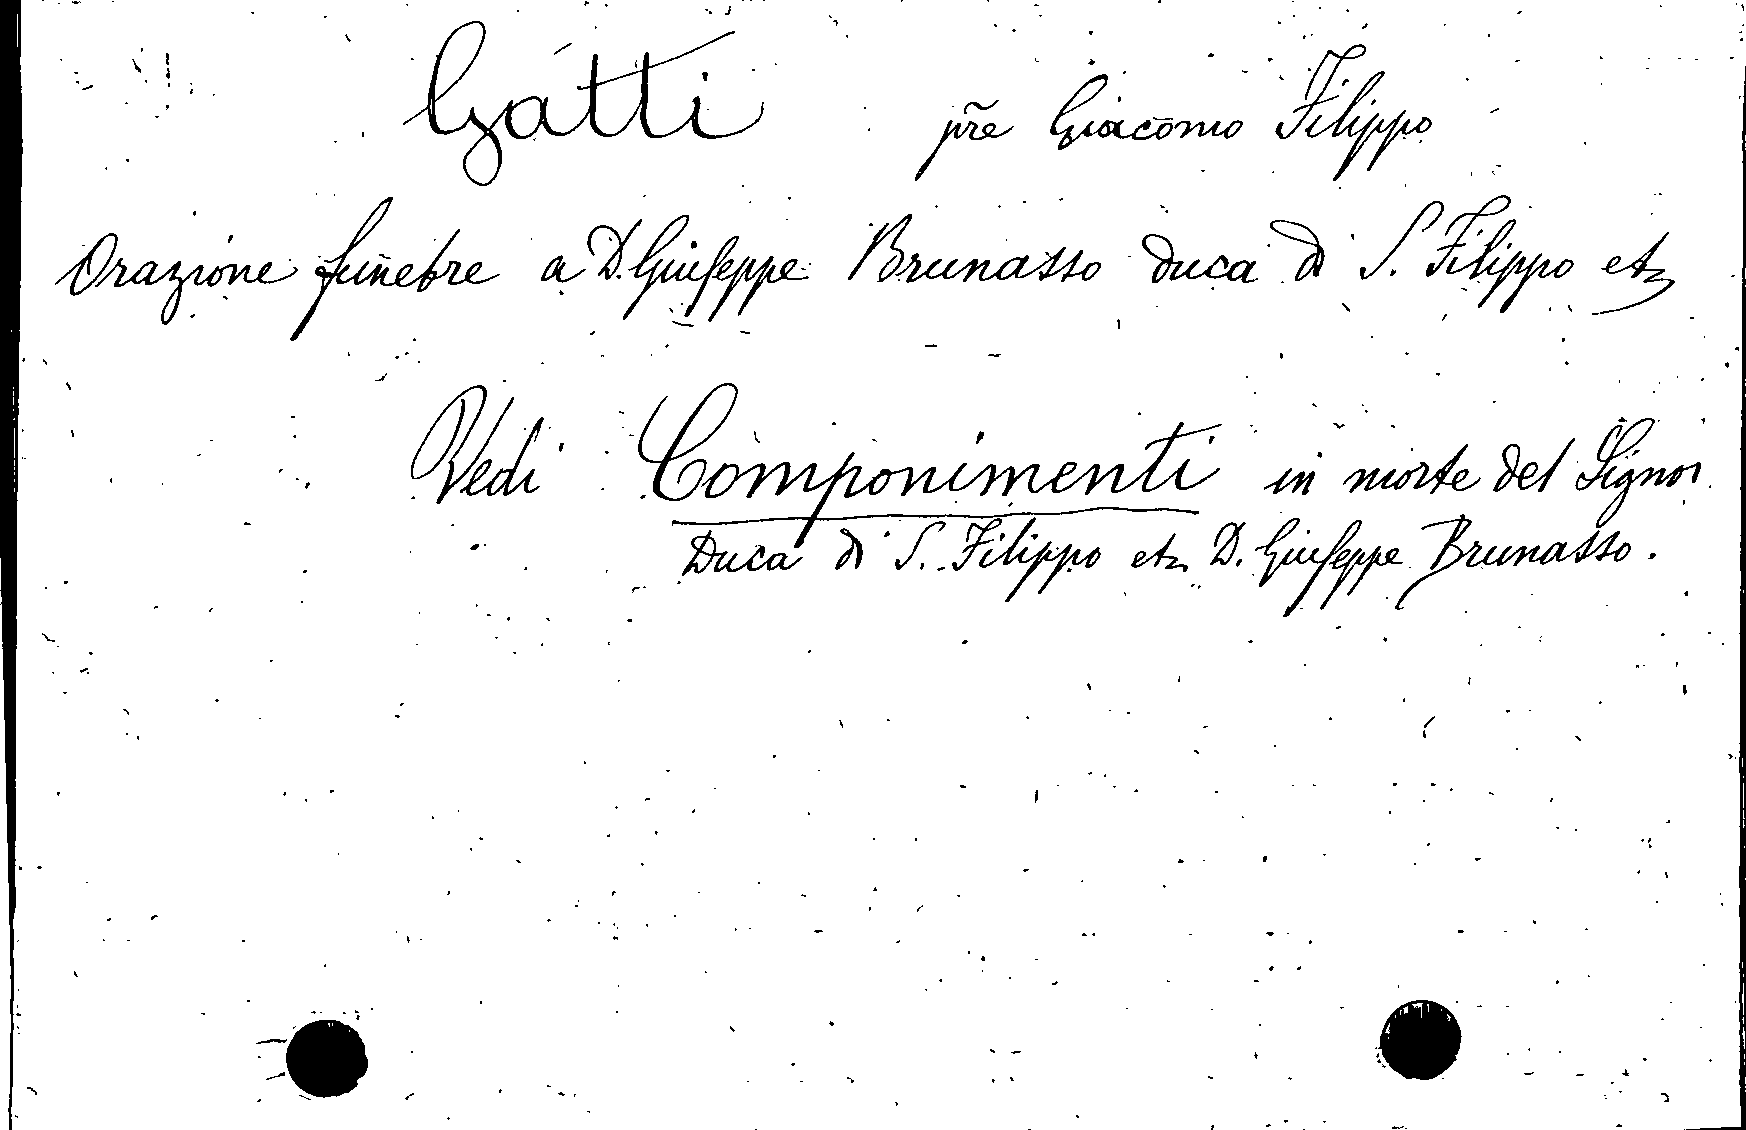 Gatti pr̃e Giacomo Filippo
Orazione funebre a D. Giuseppe Brunasso duca di S. Filippo etz
Vedi Componimenti in morte del Signor
Duca di S. Filippo etz D. Giuseppe Brunasso.